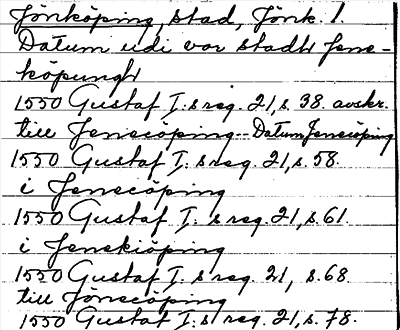 Jönköping, stad, Jönk. l.
Datum udi vor stadh Jene-
köpungh
1550 Gustaf I:s reg. 21, s. 38. avskr.
till Jenecöping -- Datum Jeneöping
1550 Gustaf I:s reg. 21, s. 58.
i Jenecöping
1550 Gustaf I:s reg. 21, s. 61.
i Jenekiöping
1550 Gustaf I:s reg. 21, s. 68
till Jönecöping
1550 Gustaf I:s reg. 21, s. 78.